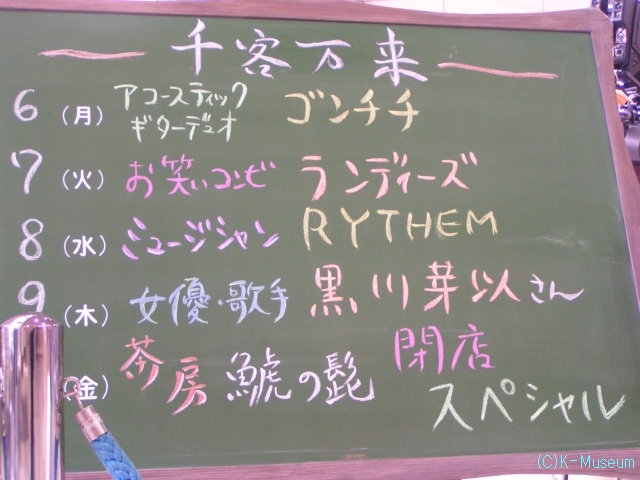 千客万来
6 (月) アコースティック ゴンチチ
ギターデュオ
7 (火) お笑いコンビ ランディーズ
8 (水) ミュージシャン RYTHEM
9 (木) 女優・歌手 黒川芽以さん
(金) 茶房 鯱の髭 閉店
スペシャル
(C)K-Museum